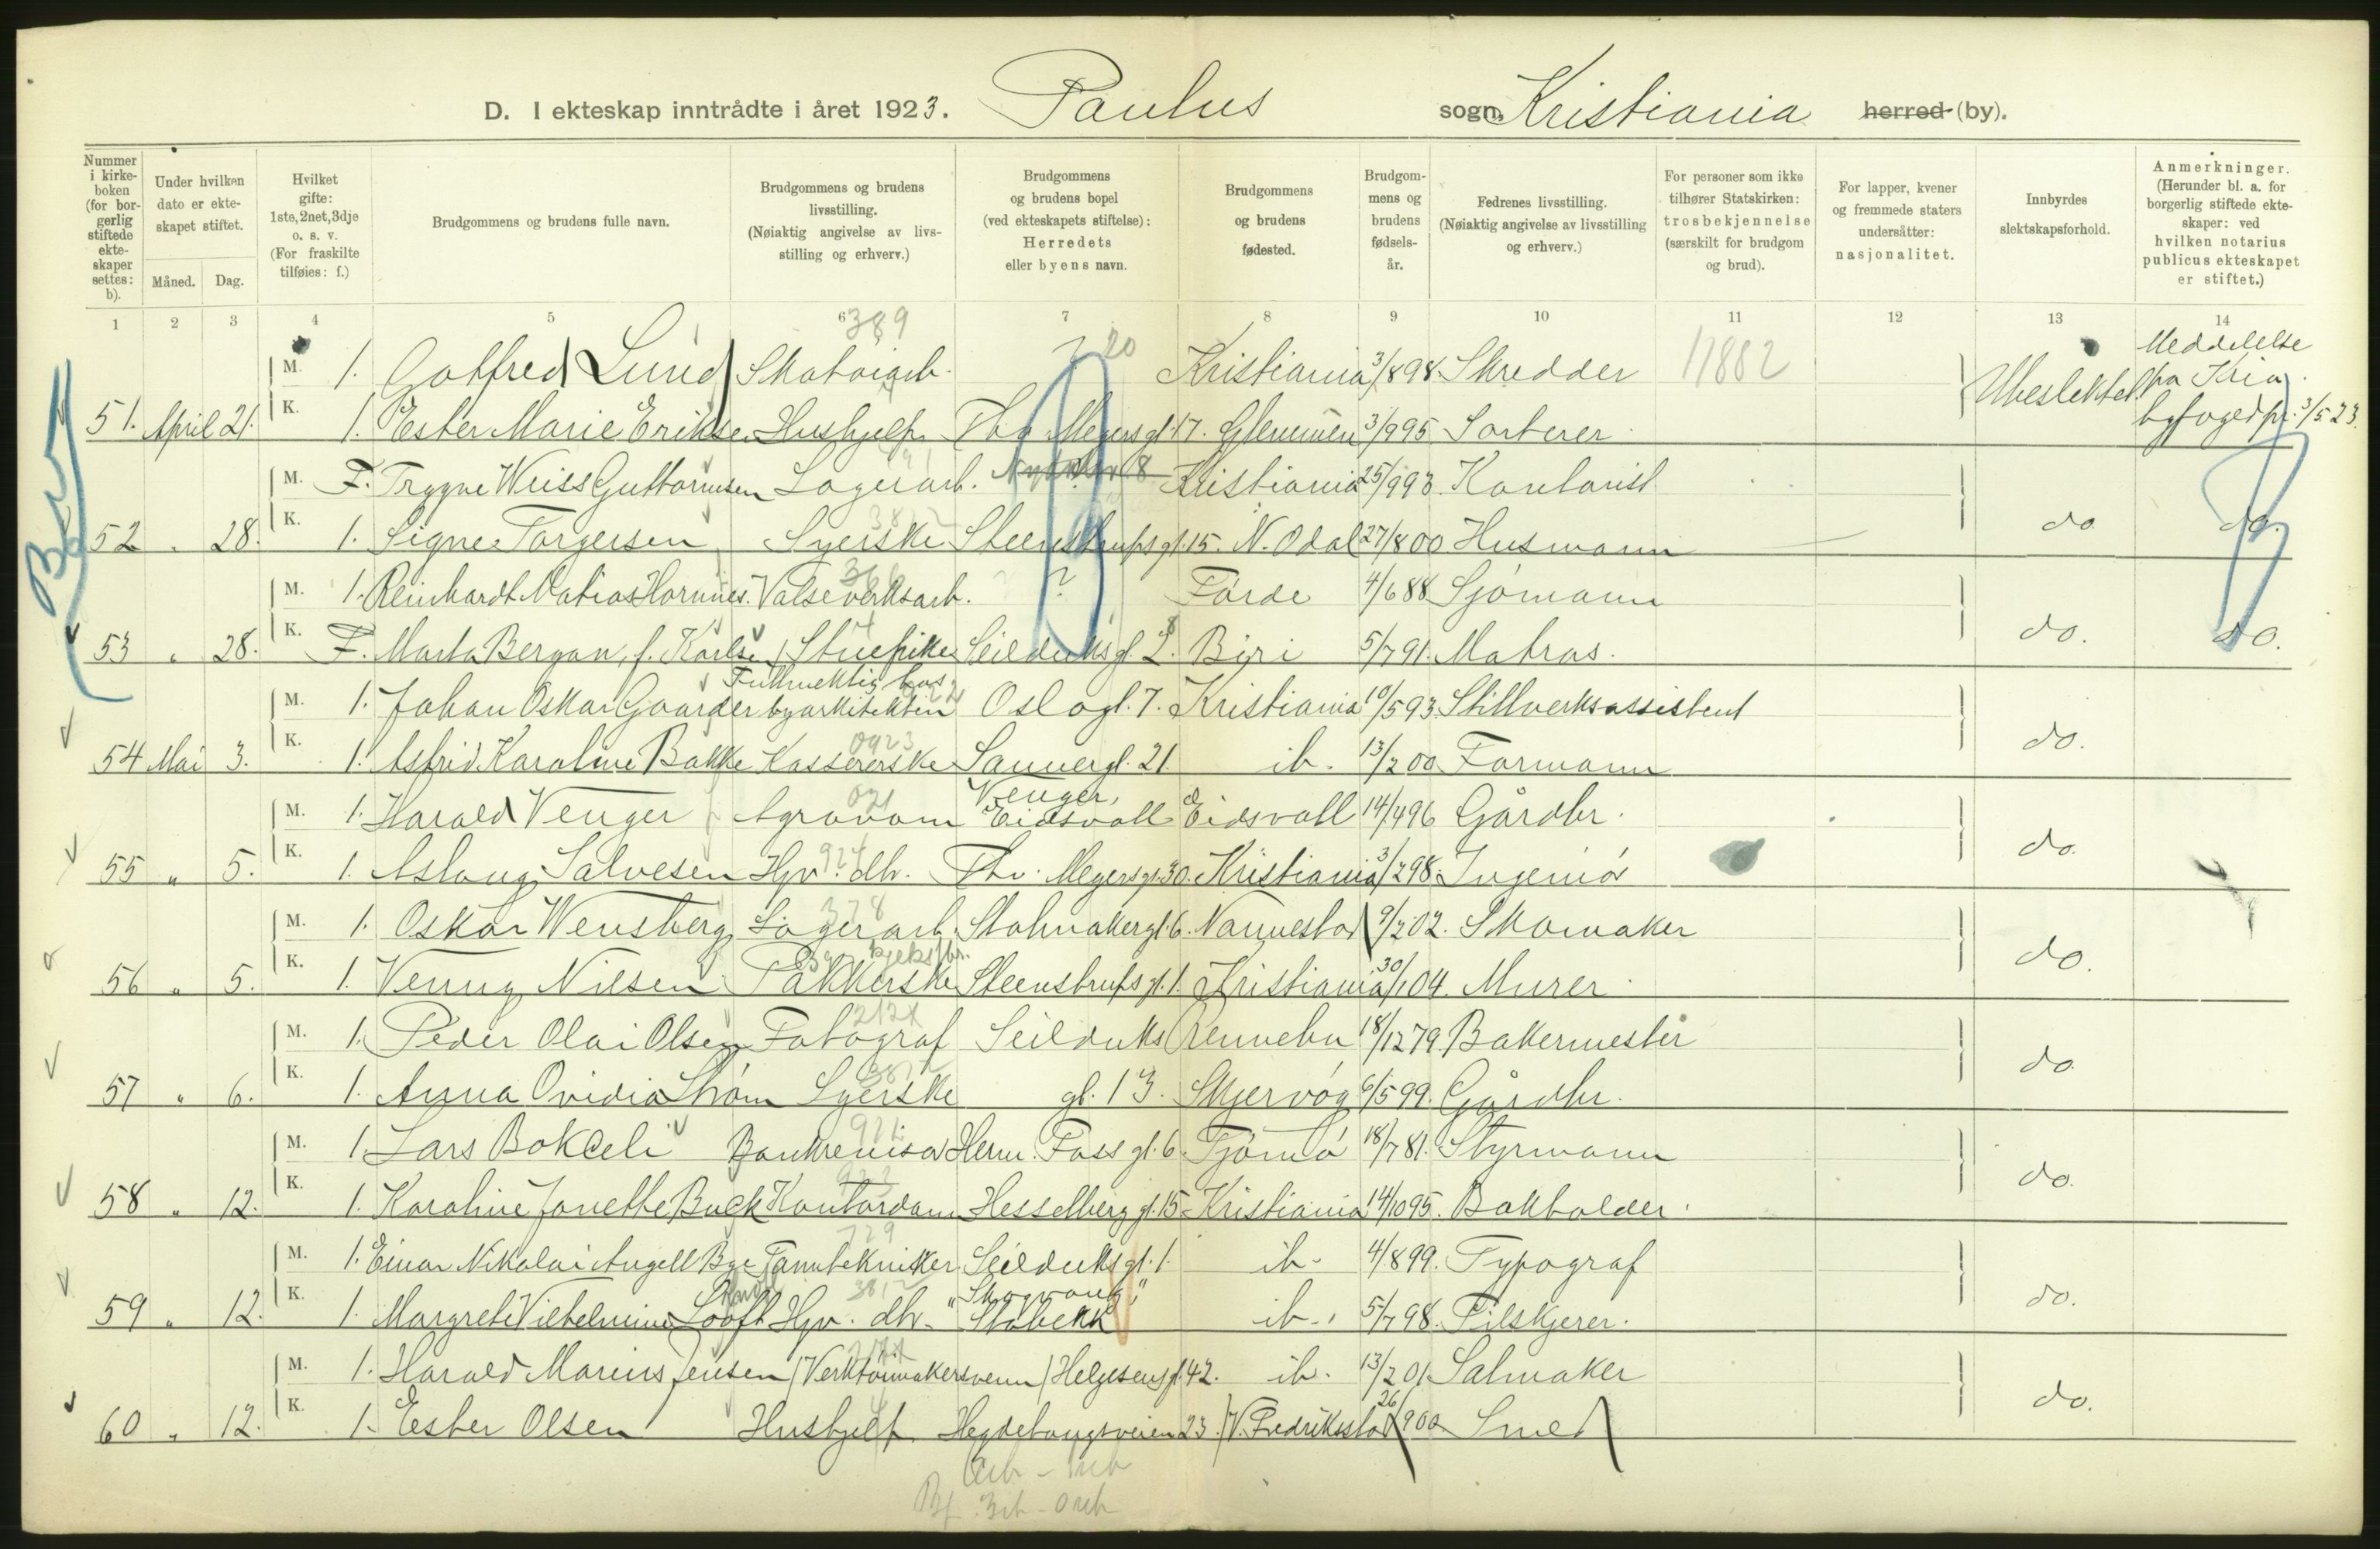 D. I ekteskap inntrådte i året 1923. Paulus sogn, Kristiania herred (by).
Nummer i kirkeboken (for borgerlig stiftede ekteskaper settes: b).
Under hvilken dato er ekteskapet stiftet. Måned. Dag.
Hvilket gifte: 1ste, 2net, 3dje o. s. v. (For fraskilte tilføies: f.)
Brudgommens og brudens fulle navn.
Brudgommens og brudens livsstilling. (Nøiaktig angivelse av livsstilling og erhverv.)
Brudgommens og brudens bopel (ved ekteskapets stiftelse): Herredets eller byens navn.
Brudgommens og brudens fødested.
Brudgommens og brudens fødselsår.
Fedrenes livsstilling. (Nøiaktig angivelse av livsstilling og erhverv.)
For personer som ikke tilhører Statskirken: trosbekjennelse (særskilt for brudgom og brud).
For lapper, kvener og fremmede staters undersåtter: nasjonalitet.
Innbyrdes slektskapsforhold.
Anmerkninger. (Herunder bl. a. for borgerlig stiftede ekteskaper: ved hvilken notarius publicus ekteskapet er stiftet.)
1 2 3 4 5 6 7 8 9 10 11 12 13 14
389
M. 1. Gotfred Lund Skotøiarb. ? 20 Kristiania 3/898 Skredder 11882 Meddelelse fra Kria byfogedpr. 3/5 23.
51. April 21. K. 1. Ester Marie Eriksen Hushjelp Thv. Meyersgt. 17. Glemmen 3/995 Sorterer. Ubeslektet.
M. F. Trygve Weiss Guttormsen Lagerarb. Kristiania 25/993. Kontorist
52 " 28. K. 1. Signe Torgersen Syerske Steenstrupsgt. 15. N. Odal 27/800 Husmann do do.
M. 1. Reinhardt Matias Hornnes. Valseverksarb. ? Førde 4/688 Sjømann
53 " 28. K. F. Marta Bergan, f. Karlsen Stuepike Seilduksgt. Biri 5/791. Matros. do. do.
Fullmektig hos
M. 1. Johan Oskar Gaarder byarkitekten Oslogt. 7. Kristiania 10/593. Stillverksassistent
0923
54 Mai 3. K. 1. Astrid Karoline Bakke Kassererske Sannergt. 21. ib. 13/200 Formann do.
021 Venger,
M. 1. Harald Venger Agronom Eidsvoll Eidsvoll 14/496 Gårdbr.
55 " 5. K. 1. Aslaug Salvesen Hjv. dtr. Thv. Meyersgt. 30. Kristiania 3/298. Ingeniør do.
378
M. 1. Oskar Wensberg Lagerarb. Stolmakergt. 6. Nannestad 9/202. Skomaker
kjeksfbr.
56 " 5. K. 1. Venny Nilsen Pakkerske Steenstrupsgt. 1. Kristiania 30/104. Murer. do.
M. 1. Peder Olai Olsen Fotograf Seilduks Rennebu 18/1279. Bakermester
57 " 6. K. 1. Anna Ovidia Strøm Syerske gt. 13. Skjervøy 6/599. Gårdbr. do.
M. 1. Lars Bokceli Bankrevisor Herm. Foss gt. 6 Tjømø 18/781. Styrmann
58 " 12. K. 1. Karoline Janette Buck Kontordame Hesselberggt. 15 Kristiania 14/1095. Bokholder. do.
729
M. 1. Einar Nikolai Angell Bye Tanntekniker Seilduksgt. 1. ib. 4/899. Typograf
59 " 12. K. 1. Margrete Vilhelmine Looft Hjv. dtr. "Skogvang," Stabekk ib. 5/798. Filskjerer. do.
M. 1. Harald Marius Jensen Verktøimakersvenn Helgesensgt. 42. ib. 13/201 Salmaker
60 " 12. K. 1. Ester Olsen Hushjelp Hegdehaugsveien 23. V. Fredrikstad 26/900 Smed do.